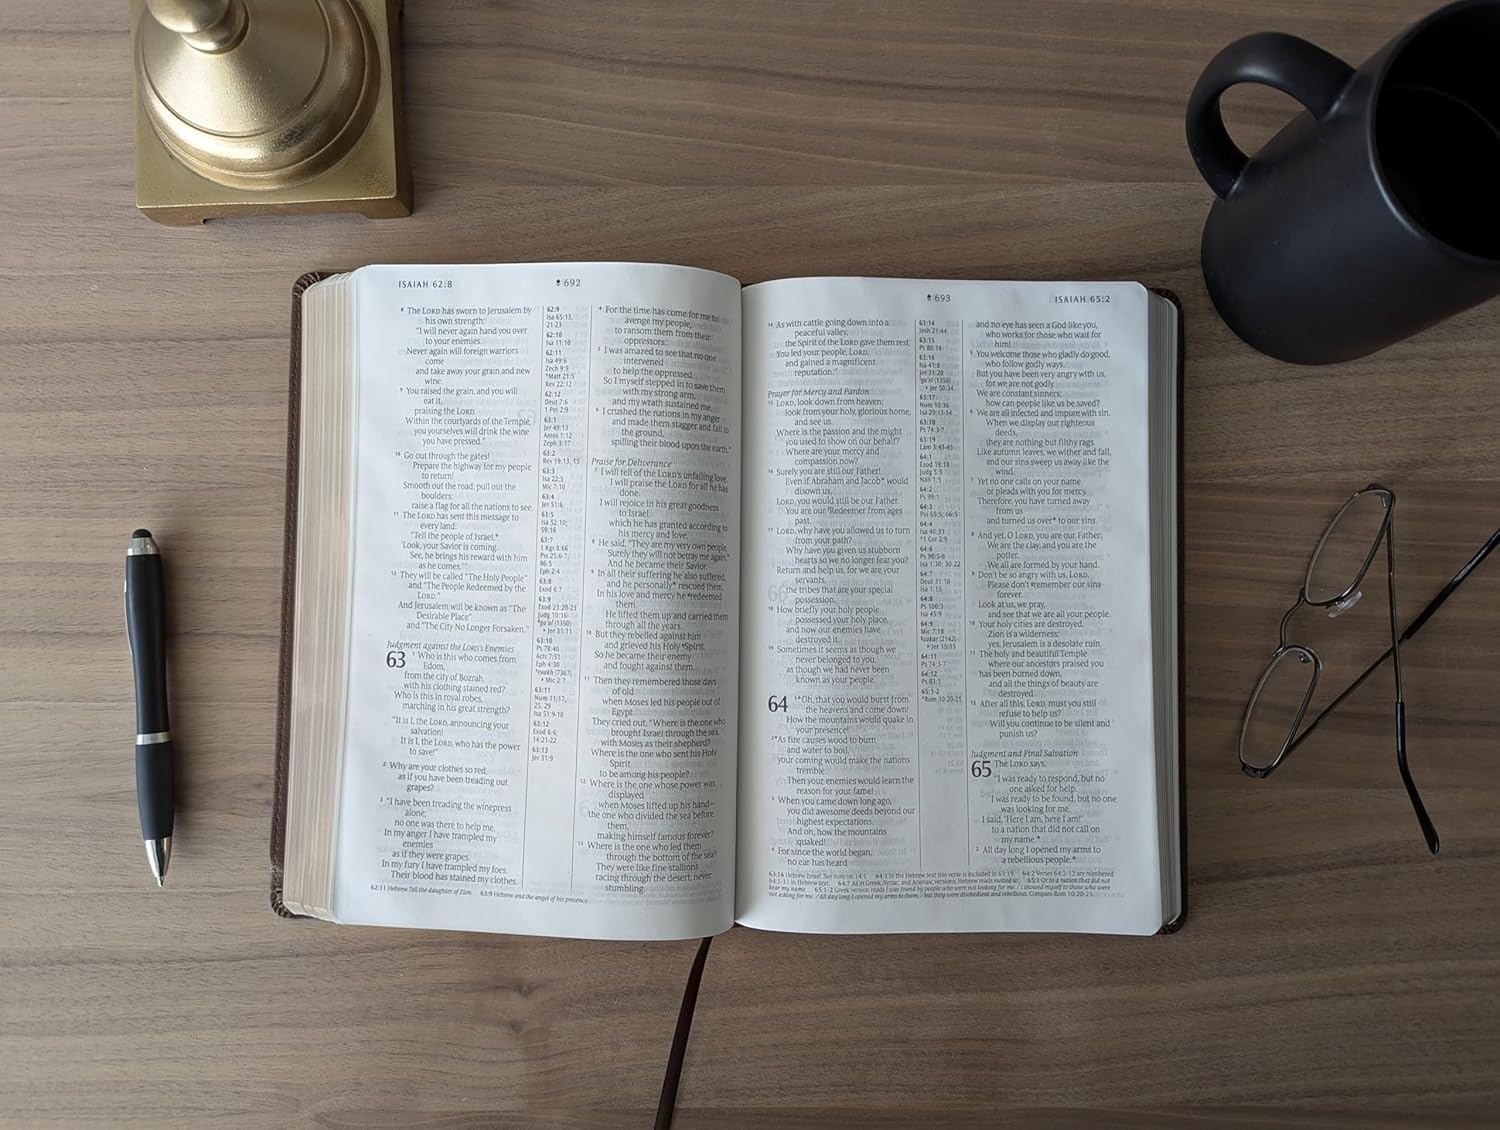 ISAIAH 62:8
692
8 The LORD has sworn to Jerusalem by
his own strength:
"I will never again hand you over
to your enemies.
Never again will foreign warriors
come
and take away your grain and new
wine.
9 You raised the grain, and you will
eat it,
praising the LORD.
Within the courtyards of the Temple,
you yourselves will drink the wine
you have pressed."
10 Go out through the gates!
Prepare the highway for my people
to return!
Smooth out the road; pull out the
boulders;
raise a flag for all the nations to see.
11 The LORD has sent this message to
every land:
"Tell the people of Israel,*
'Look, your Savior is coming.
See, he brings his reward with him
as he comes.'"
12 They will be called "The Holy People"
and "The People Redeemed by the
LORD."
And Jerusalem will be known as "The
Desirable Place"
and "The City No Longer Forsaken."
Judgment against the LORD's Enemies
63 1 Who is this who comes from
Edom,
from the city of Bozrah,
with his clothing stained red?
Who is this in royal robes,
marching in his great strength?
"It is I, the LORD, announcing your
salvation!
It is I, the LORD, who has the power
to save!"
2 Why are your clothes so red,
as if you have been treading out
grapes?
3 "I have been treading the winepress
alone;
no one was there to help me.
In my anger I have trampled my
enemies
as if they were grapes.
In my fury I have trampled my foes.
Their blood has stained my clothes.
62:9
Isa 65:13,
21-23
62:10
Isa 11:10
62:11
Isa 49:6
Zech 9:9
*Matt 21:5
Rev 22:12
62:12
Deut 7:6
1 Pet 2:9
63:1
Jer 49:13
Amos 1:12
Zeph 3:17
63:2
Rev 19:13, 15
63:3
Isa 22:5
Mic 7:10
63:4
Jer 51:6
63:5
Isa 52:10;
59:16
63:7
1 Kgs 8:66
Pss 25:6-7;
86:5
Eph 2:4
63:8
Exod 6:7
63:9
Exod 23:20-23
Judg 10:16
ga'al (1350)
Jer 31:11
63:10
Ps 78:40
Acts 7:51
Eph 4:30
ruakh (7307)
Mic 2:7
63:11
Num 11:17,
25, 29
Isa 51:9-10
63:12
Exod 6:6;
14:21-22
63:13
Jer 31:9
4 For the time has come for me to
avenge my people,
to ransom them from their
oppressors.
5 I was amazed to see that no one
intervened
to help the oppressed.
So I myself stepped in to save them
with my strong arm,
and my wrath sustained me.
6 I crushed the nations in my anger
and made them stagger and fall to
the ground,
spilling their blood upon the earth."
Praise for Deliverance
7 I will tell of the LORD's unfailing love.
I will praise the LORD for all he has
done.
I will rejoice in his great goodness
to Israel,
which he has granted according to
his mercy and love.
8 He said, "They are my very own people.
Surely they will not betray me again."
And he became their Savior.
9 In all their suffering he also suffered,
and he personally* rescued them.
In his love and mercy he redeemed
them.
He lifted them up and carried them
through all the years.
10 But they rebelled against him
and grieved his Holy Spirit.
So he became their enemy
and fought against them.
11 Then they remembered those days
of old
when Moses led his people out of
Egypt.
They cried out, "Where is the one who
brought Israel through the sea,
with Moses as their shepherd?
Where is the one who sent his Holy
Spirit
to be among his people?
12 Where is the one whose power was
displayed
when Moses lifted up his hand—
the one who divided the sea before
them,
making himself famous forever?
13 Where is the one who led them
through the bottom of the sea?
They were like fine stallions
racing through the desert, never
stumbling.
62:11 Hebrew Tell the daughter of Zion. 63:9 Hebrew and the angel of his presence
693
ISAIAH 65:2
14 As with cattle going down into a
peaceful valley,
the Spirit of the LORD gave them rest.
You led your people, LORD,
and gained a magnificent
reputation."
Prayer for Mercy and Pardon
15 LORD, look down from heaven;
look from your holy, glorious home,
and see us.
Where is the passion and the might
you used to show on our behalf?
Where are your mercy and
compassion now?
16 Surely you are still our Father!
Even if Abraham and Jacob* would
disown us,
LORD, you would still be our Father.
You are our Redeemer from ages
past.
17 LORD, why have you allowed us to turn
from your path?
Why have you given us stubborn
hearts so we no longer fear you?
Return and help us, for we are your
servants,
the tribes that are your special
possession.
18 How briefly your holy people
possessed your holy place,
and now our enemies have
destroyed it.
19 Sometimes it seems as though we
never belonged to you,
as though we had never been
known as your people.
64 1*Oh, that you would burst from
the heavens and come down!
How the mountains would quake in
your presence!
2*As fire causes wood to burn
and water to boil,
your coming would make the nations
tremble.
Then your enemies would learn the
reason for your fame!
3 When you came down long ago,
you did awesome deeds beyond our
highest expectations.
And oh, how the mountains
quaked!
4 For since the world began,
no ear has heard
63:14
Josh 21:44
63:15
Ps 80:14
63:16
Isa 41:8
Jer 31:20
ga'al (1350)
Jer 50:34
63:17
Num 10:36
Isa 29:13-14
63:18
Ps 74:3-7
63:19
Lam 3:43-45
64:1
Exod 19:18
Judg 5:5
Nah 1:5
64:2
Ps 99:1
64:3
Pss 65:5; 66:5
64:4
Isa 40:31
*1 Cor 2:9
64:6
Ps 90:5-6
Isa 1:30; 30:22
64:7
Deut 31:18
Isa 1:15
64:8
Ps 100:3
Isa 45:9
64:9
Mic 7:18
zakar (2142)
Jer 15:15
64:11
Ps 74:3-7
64:12
Ps 83:1
65:1-2
*Rom 10:20-21
and no eye has seen a God like you,
who works for those who wait for
him!
5 You welcome those who gladly do good,
who follow godly ways.
But you have been very angry with us,
for we are not godly.
We are constant sinners;
how can people like us be saved?
6 We are all infected and impure with sin.
When we display our righteous
deeds,
they are nothing but filthy rags.
Like autumn leaves, we wither and fall,
and our sins sweep us away like the
wind.
7 Yet no one calls on your name
or pleads with you for mercy.
Therefore, you have turned away
from us
and turned us over* to our sins.
8 And yet, O LORD, you are our Father.
We are the clay, and you are the
potter.
We all are formed by your hand.
9 Don't be so angry with us, LORD.
Please don't remember our sins
forever.
Look at us, we pray,
and see that we are all your people.
10 Your holy cities are destroyed.
Zion is a wilderness;
yes, Jerusalem is a desolate ruin.
11 The holy and beautiful Temple
where our ancestors praised you
has been burned down,
and all the things of beauty are
destroyed.
12 After all this, LORD, must you still
refuse to help us?
Will you continue to be silent and
punish us?
Judgment and Final Salvation
65 The LORD says,
1 "I was ready to respond, but no
one asked for help.
I was ready to be found, but no one
was looking for me.
I said, 'Here I am, here I am!'
to a nation that did not call on
my name.*
2 All day long I opened my arms to
a rebellious people.*
63:16 Hebrew Israel. See note on 14:1. 64:1 In the Hebrew text this verse is included in 63:19. 64:2 Verses 64:2-12 are numbered
64:1-11 in Hebrew text. 64:7 As in Greek, Syriac, and Aramaic versions; Hebrew reads melted us. 65:1 Or to a nation that did not
bear my name. 65:1-2 Greek version reads I was found by people who were not looking for me. / I showed myself to those who were
not asking for me. / All day long I opened my arms to them, / but they were disobedient and rebellious. Compare Rom 10:20-21.